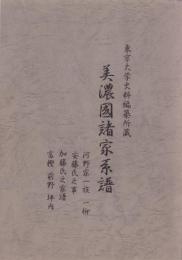 東京大学史料編纂所蔵
美濃國諸家系譜
河野家一族 一柳
安藤氏之事
加藤氏之家譜
富樫 前野 坪内